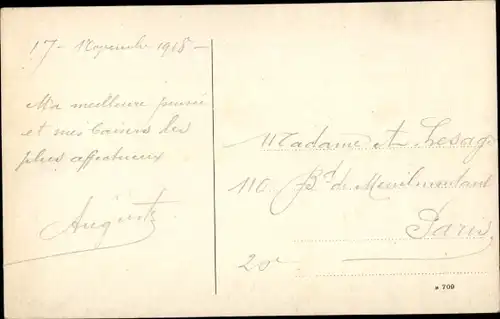 17 - Novembre 1918 -
Ma meilleure pensée
et mes baisers les
plus affectueux
Auguste
Madame A Lesage
110 Bd de Menilmontant
Paris
20e
» 709